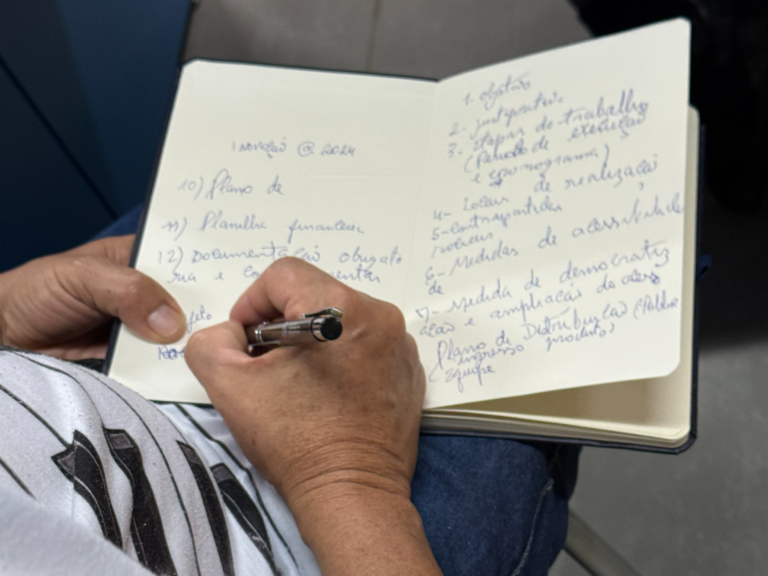 Inovação @ 2024
10) Plano de
11) Planilha financeira
12) Documentação obrigató
ria e
1. objetivo
2- justificativa
3- Etapas de trabalho
(Período de execução
e cronograma)
4- Locais de realização
5- Contrapartidas
6- Medidas de acessibilidade
de
7- Medida de democratiz
ação e ampliação do acesso
Plano de Distribuição (
ingresso produto)
Equipe